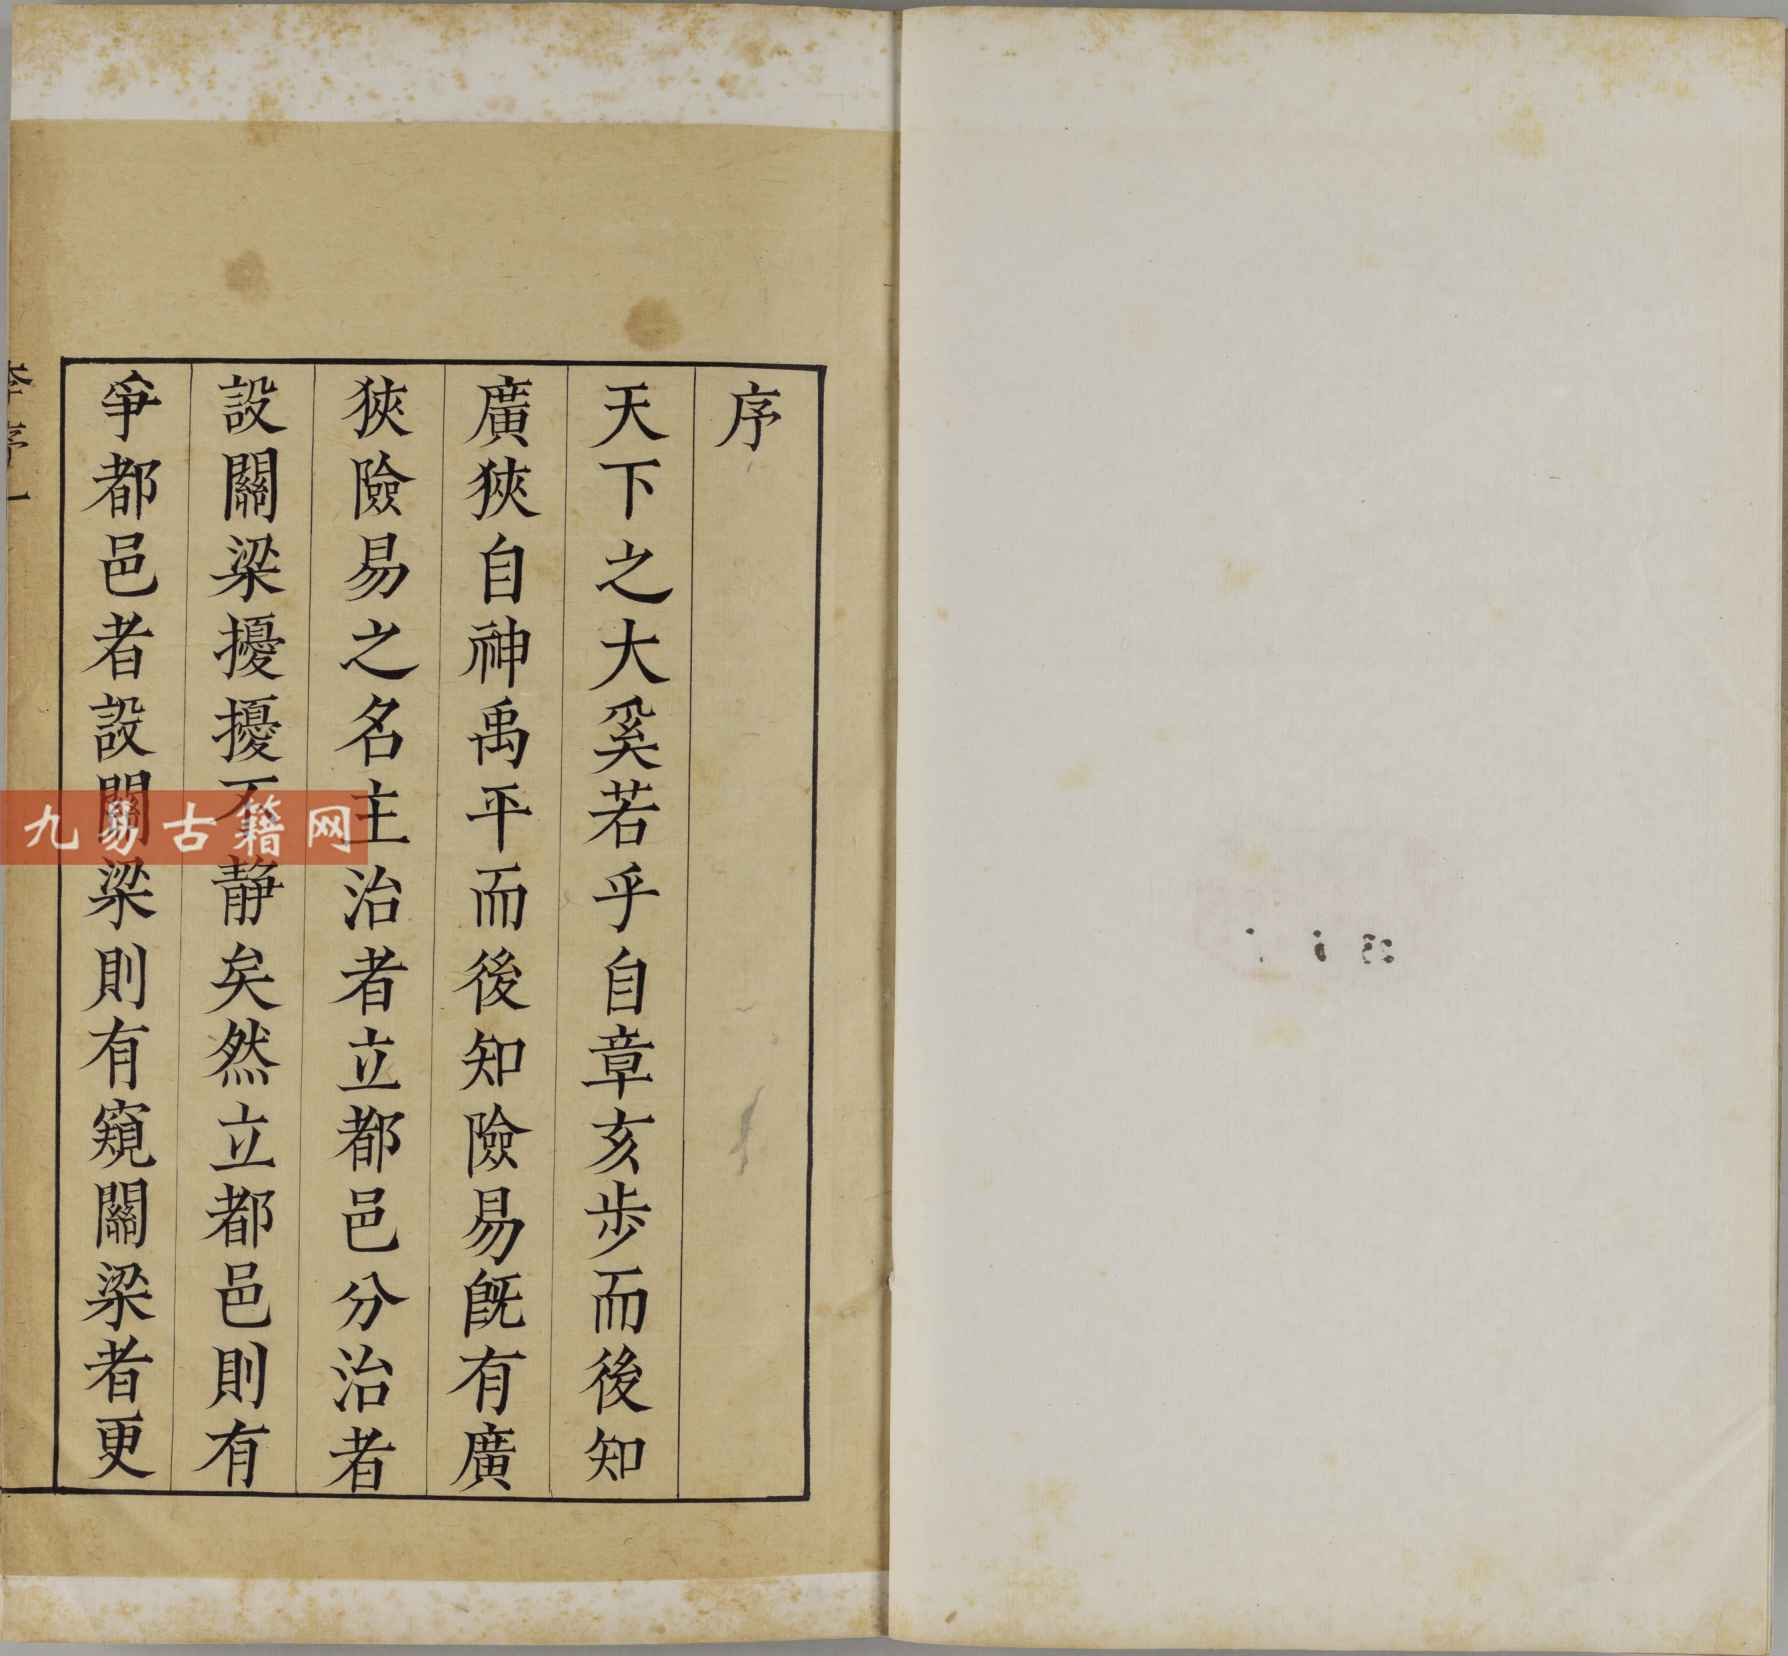 序
天下之大奚若乎自章亥步而後知
廣狹自神禹平而後知險易旣有廣
狹險易之名主治者立都邑分治者
設關梁擾擾不靜矣然立都邑則有
爭都邑者設關梁則有窺關梁者更
序一
九易古籍网